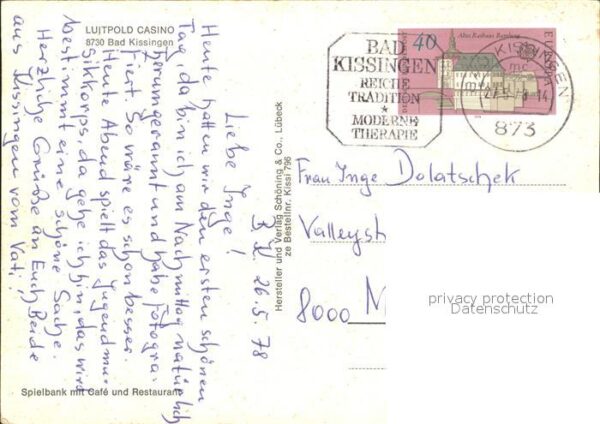 LUITPOLD CASINO
8730 Bad Kissingen
B.K. 26.5.78
Liebe Inge!
Heute hatten wir den ersten schönen
Tag, da bin ich am Nachmittag natürlich
herumgerannt und habe fotogra-
fiert. So wäre es schon besser.
Heute Abend spielt das Jugendmu-
sikkorps, da gehe ich hin, das wird
bestimmt eine schöne Sache.
Herzliche Grüße an Euch Beide
aus Kissingen vom Vati!
Spielbank mit Café und Restaurant
Hersteller und Verlag Schöning & Co., Lübeck
ze Bestellnr. Kissi 796
BAD
KISSINGEN
REICHE
TRADITION
*
MODERNE
THERAPIE
40
Altes Rathaus Bamberg
EUROPA
KISSINGEN
873
Frau Inge Dolatschek
Valleyst
8000 M
privacy protection
Datenschutz